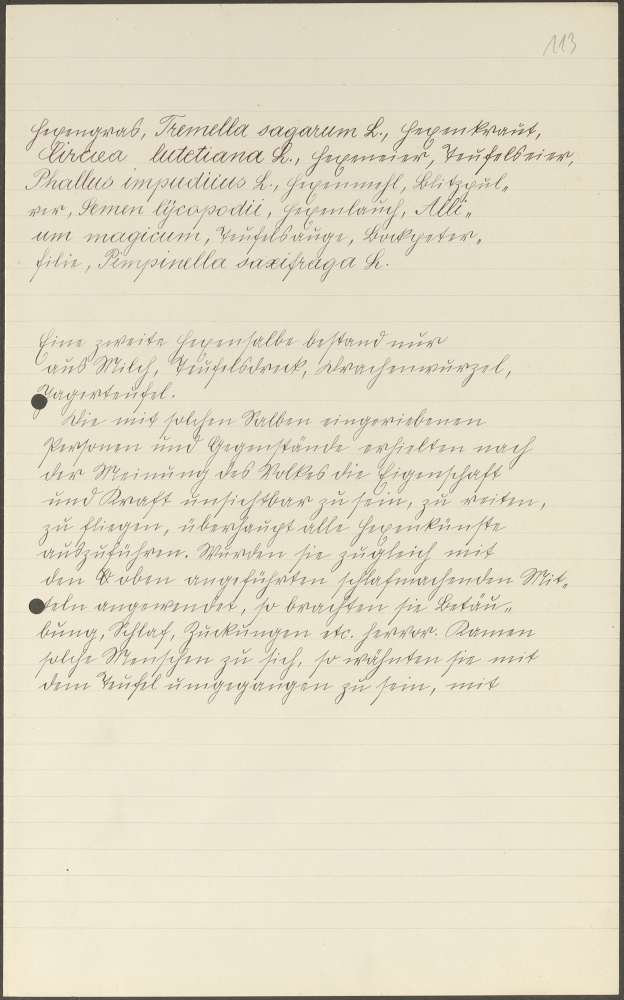 113
Hexengras, Tremella sagarum L., Hexenkraut,
Circaea lutetiana L., Hexeneier, Teufelseier,
Phallus impudicus L., Hexenmehl, Blitzpul„
ver, Semen lycopodii, Hexenlauch, Alli„
um magicum, Teufelsauge, Bockpeter„
silie, Pimpinella saxifraga L.
Eine zweite Hexensalbe bestand nur
aus Milch, Teufelsdreck, Drachenwurzel,
Jagerteufel.
Die mit solchen Salben eingeriebenen
Personen und Gegenstände erhielten nach
der Meinung des Volkes die Eigenschaft
und Kraft unsichtbar zu sein, zu reiten,
zu fliegen, überhaupt alle Hexenkünste
auszuführen. Wurden sie zugleich mit
den oben angeführten schlafmachenden Mit„
teln angewendet, so brachten sie Betäu„
bung, Schlaf, Zuckungen etc. hervor. Kamen
solche Menschen zu sich, so wähnten sie mit
dem Teufel umgegangen zu sein, mit